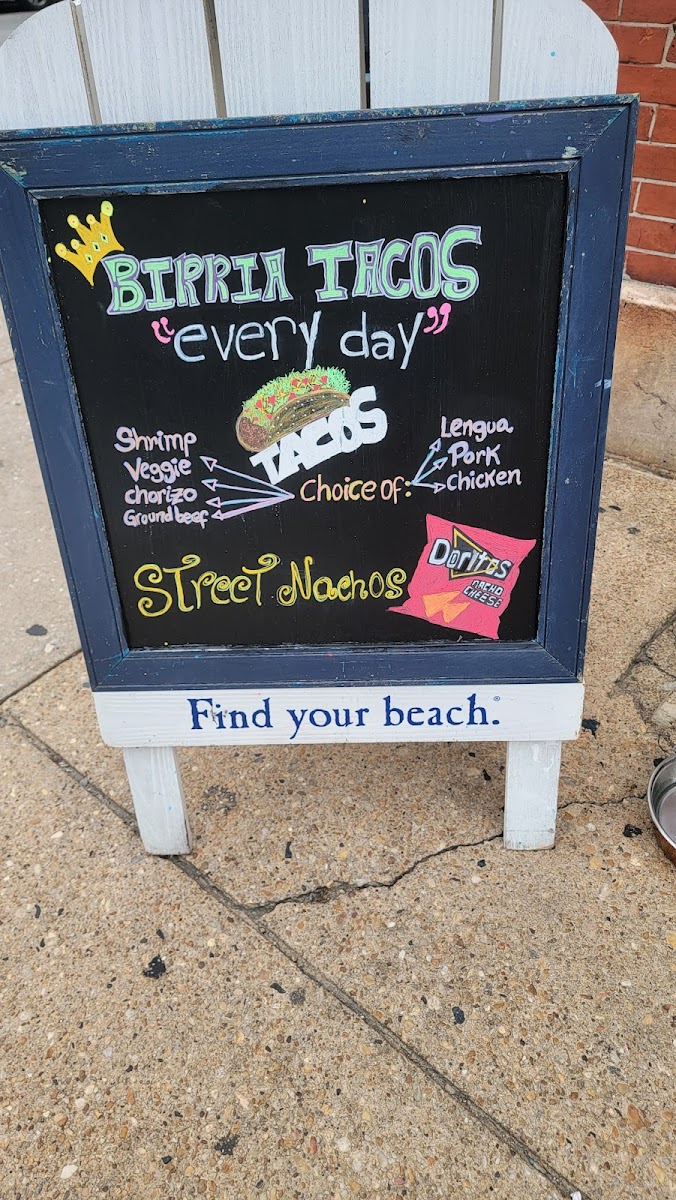 BIRRIA TACOS
"every day"
TACOS
Shrimp
Veggie
chorizo
Ground beef
Choice of:
Lengua
Pork
chicken
Street Nachos
Doritos
NACHO
CHEESE
Find your beach.®